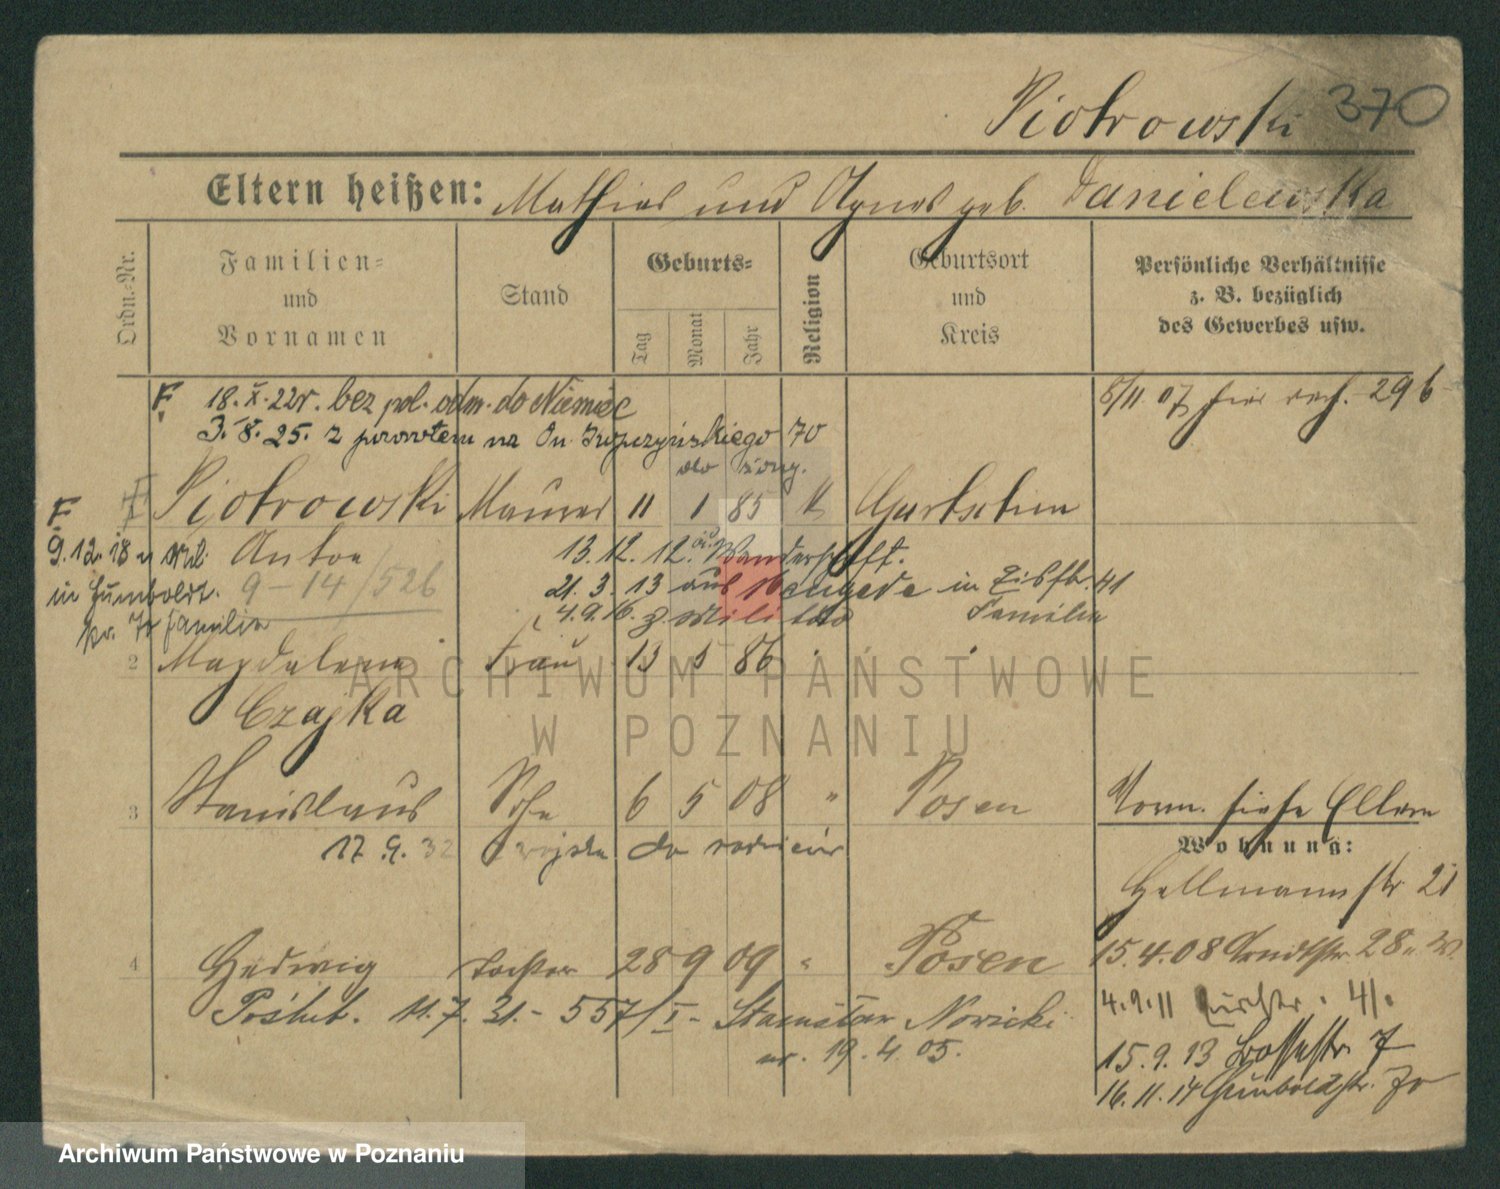 Piotrowski 370
Eltern heißen: Mathias und Agnes geb. Danielewska
Ordn.-Nr.
Familien= und Vornamen
Stand
Geburts=
Tag Monat Jahr
Religion
Geburtsort und Kreis
Persönliche Verhältnisse z. B. bezüglich des Gewerbes usw.
F. 18. X. 22 r. bez pol. odm. do Niemiec
3. 8. 25. z powrotem na 70
do żony.
8/11 07 hier 296
F Piotrowski Maurer 11 1 85 k
9. 12. 18 Anton 13. 12. 12. Wanderschaft.
in Humboldt. 9-14/526 21. 3. 13 aus in 41
familia 4. 9. 16. z Familie
2 Magdalena Frau 13 5 86
Czajka
3 Stanislaus Sohn 6 5 08 " Posen
Vorm. siehe Eltern
17. 9. 32 do
Wohnung:
Hellmannstr 21
4 Hedwig Tochter 28 9 09 " Posen
15. 4. 08 28
Poślub. 11. 7. 31. - 557/I - Stanisław Nowicki
ur. 19. 4. 05.
4. 9. 11 41.
15. 9. 13 7
16. 11. 14 Humboldtstr. 70
ARCHIWUM PAŃSTWOWE
W POZNANIU
Archiwum Państwowe w Poznaniu